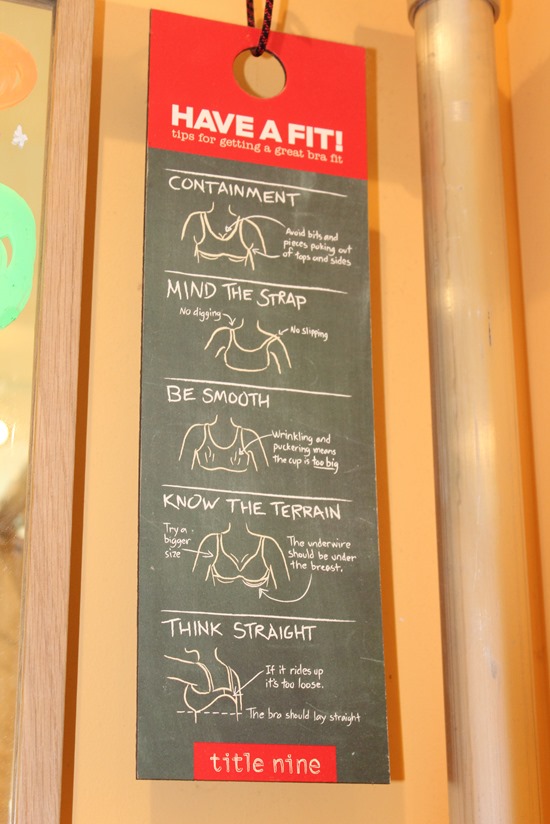 HAVE A FIT!
tips for getting a great bra fit
CONTAINMENT
Avoid bits and
pieces poking out
of tops and sides
MIND THE STRAP
No digging
No slipping
BE SMOOTH
Wrinkling and
puckering means
the cup is too big
KNOW THE TERRAIN
Try a
bigger
size
The underwire
should be under
the breast.
THINK STRAIGHT
If it rides up
it's too loose.
The bra should lay straight
title nine